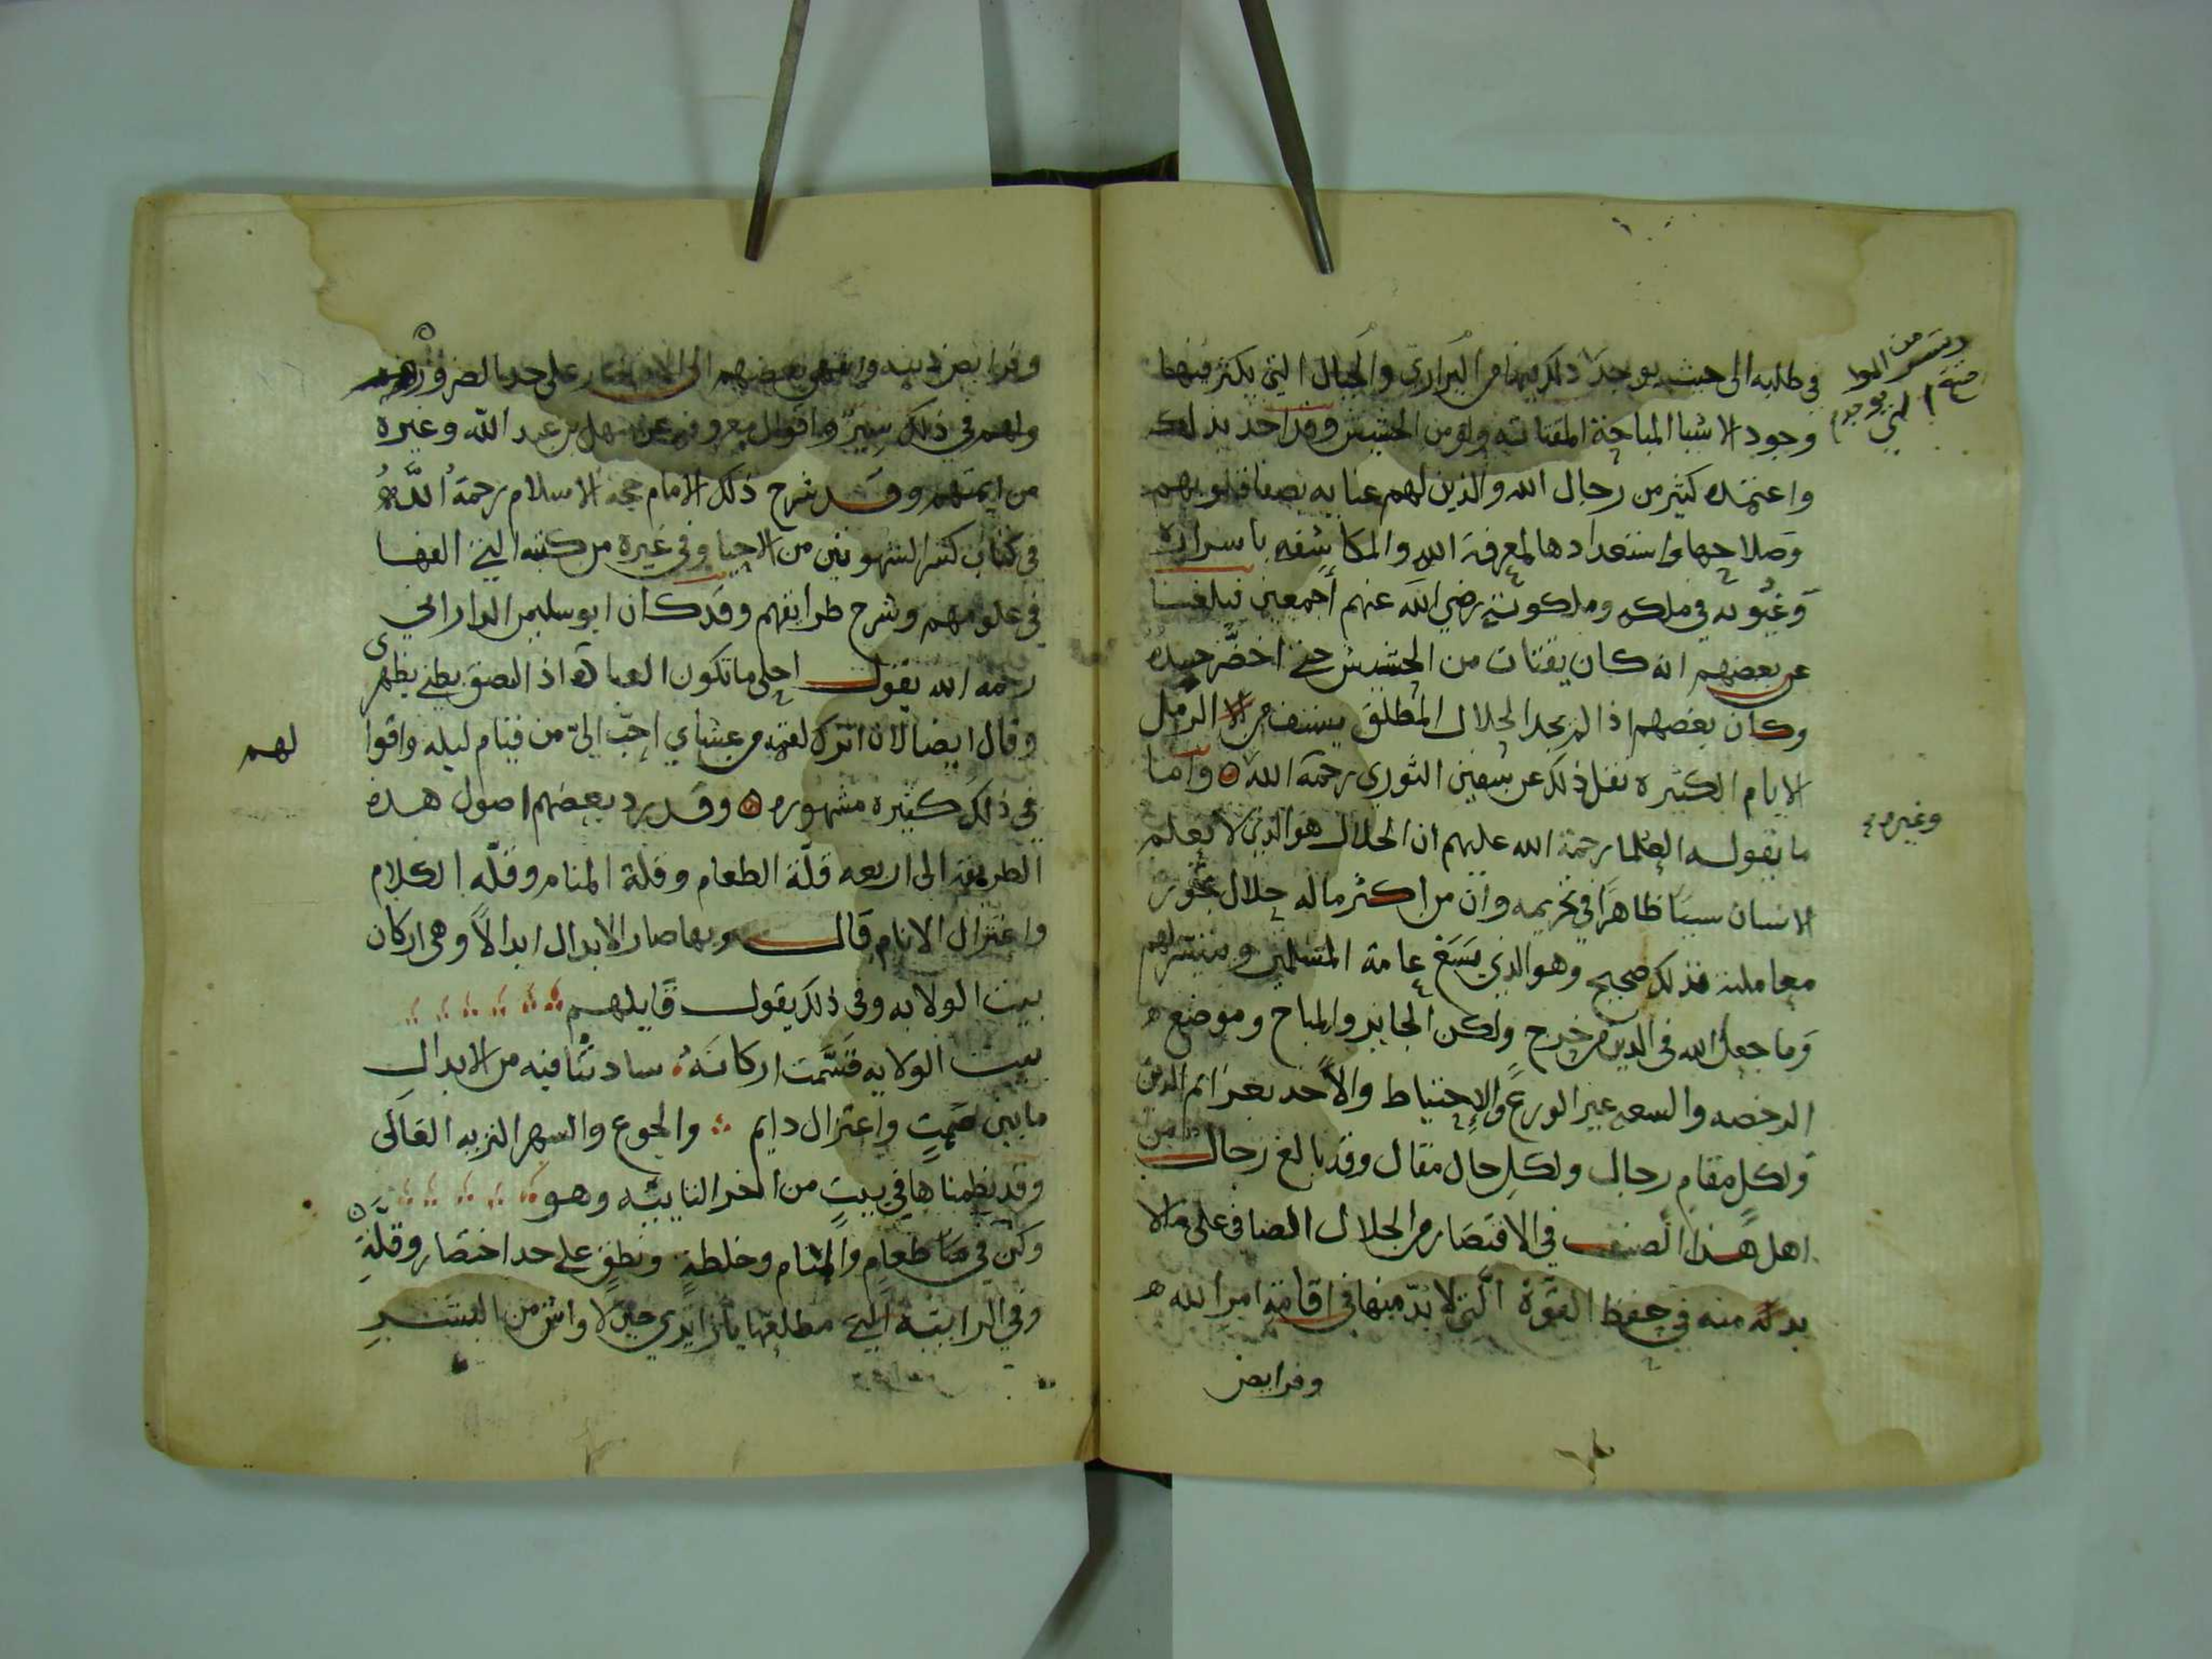 في طلبه الى حيث يوجد ذلك فيها من البراري والجبال التي يكثر فيها
وجود الاشيا المباحة المقتاته ولو من الحشيش وقد اخذ بذلك
واعتمده كثير من رجال الله والذين لهم عنايه بصفا قلوبهم
وصلاحها واستعدادها لمعرفة الله والمكاشفه باسراره
وغيوبه في ملكه وملكوته رضي الله عنهم أجمعين فبلغنا
عن بعضهم انه كان يقتات من الحشيش حتى اخضر جلده
وكان بعضهم اذا لم يجد الحلال المطلق يستف من الرمل
الايام الكثيره نقل ذلك عن سفين الثوري رحمة الله واما
ما يقوله العلما رحمة الله عليهم ان الحلال هو الذي لا يعلم
الانسان سببا ظاهرا في تحريمه وان من اكثر ماله حلال تجوز
معاملته فذلك صحيح وهو الذي يسع عامة المسلمين ويتيسر لهم
وما جعل الله في الدين من حرج ولكن الجايز والمباح وموضع
الرخصه والسعه غير الورع والاحتياط والاخذ بعزائم الدين
ولكل مقام رجال ولكل حال مقال وقد بالغ رجال من
اهل هذا الصنف في الاقتصار من الحلال الصافي على ما لا
بد له منه في حفظ القوة التي لا بد منها في اقامة امر الله
وفرايض
من الموا
التي يوجد
وغيره
وفرايض دينه وانتهى بعضهم الى الاقتصار على حد الضرورة
ولهم في ذلك سير واقوال معروفه عن سهل بن عبد الله وغيره
من ايمتهم وقد شرح ذلك الامام حجة الاسلام رحمة الله
في كتاب كسر الشهوتين من الاحيا وفي غيره من كتبه التي الفها
في علومهم وشرح طرايقهم وقد كان ابو سليمن الداراني
رحمه الله يقول احلى ما تكون العبادة اذا لصق بطني بظهري
وقال ايضا لان اترك لقمة من عشاي احب الي من قيام ليله واقوا
لهم
في ذلك كثيره مشهوره وقد يرد بعضهم اصول هذه
الطريقه الى اربعه قلة الطعام وقلة المنام وقله الكلام
واعتزال الانام قال وبها صار الابدال ابدالا وهي اركان
بيت الولايه وفي ذلك يقول قايلهم
بيت الولايه قسمت اركانه ساداتنا فيه من الابدال
ما بين صمت واعتزال دايم والجوع والسهر النزيه العالى
وقد نظمناها في بيت من اخر التاييه وهو
وكن في طعام والمنام وخلطة ونطق على حد اختصار وقلة
وفي الرابية التي مطلعها يا زايري حين لا واش من البشر